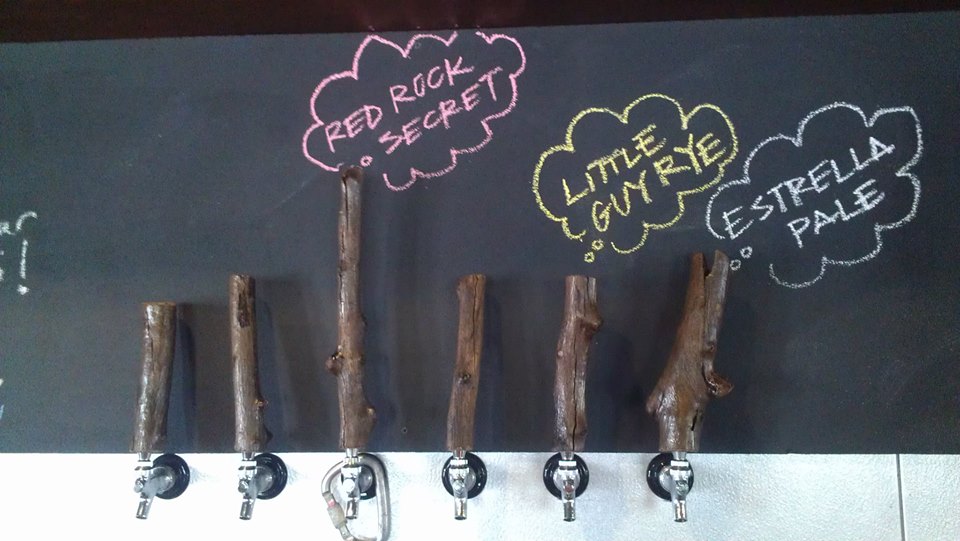 RED ROCK
SECRET
LITTLE
GUY RYE
ESTRELLA
PALE